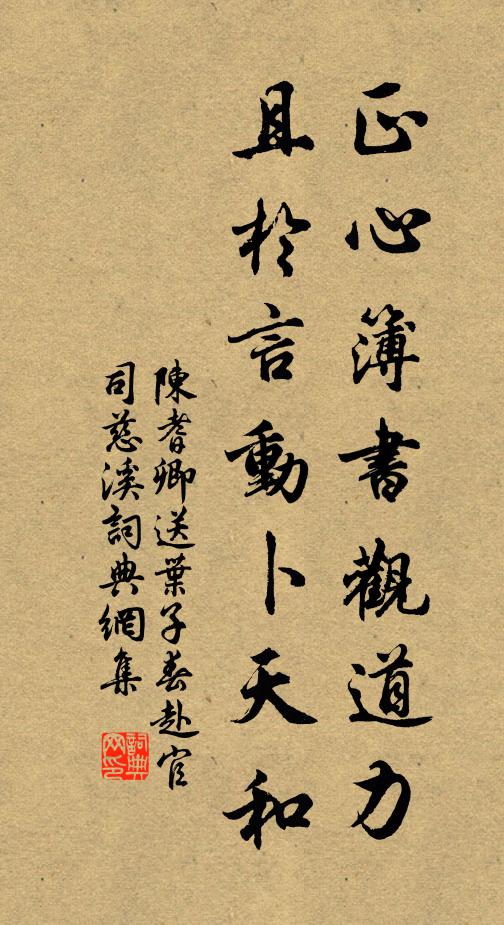 正心簿書觀道力
且於言動卜天和
陳耆卿送葉子春赴官
司慈溪詞典網集
詞典
网印